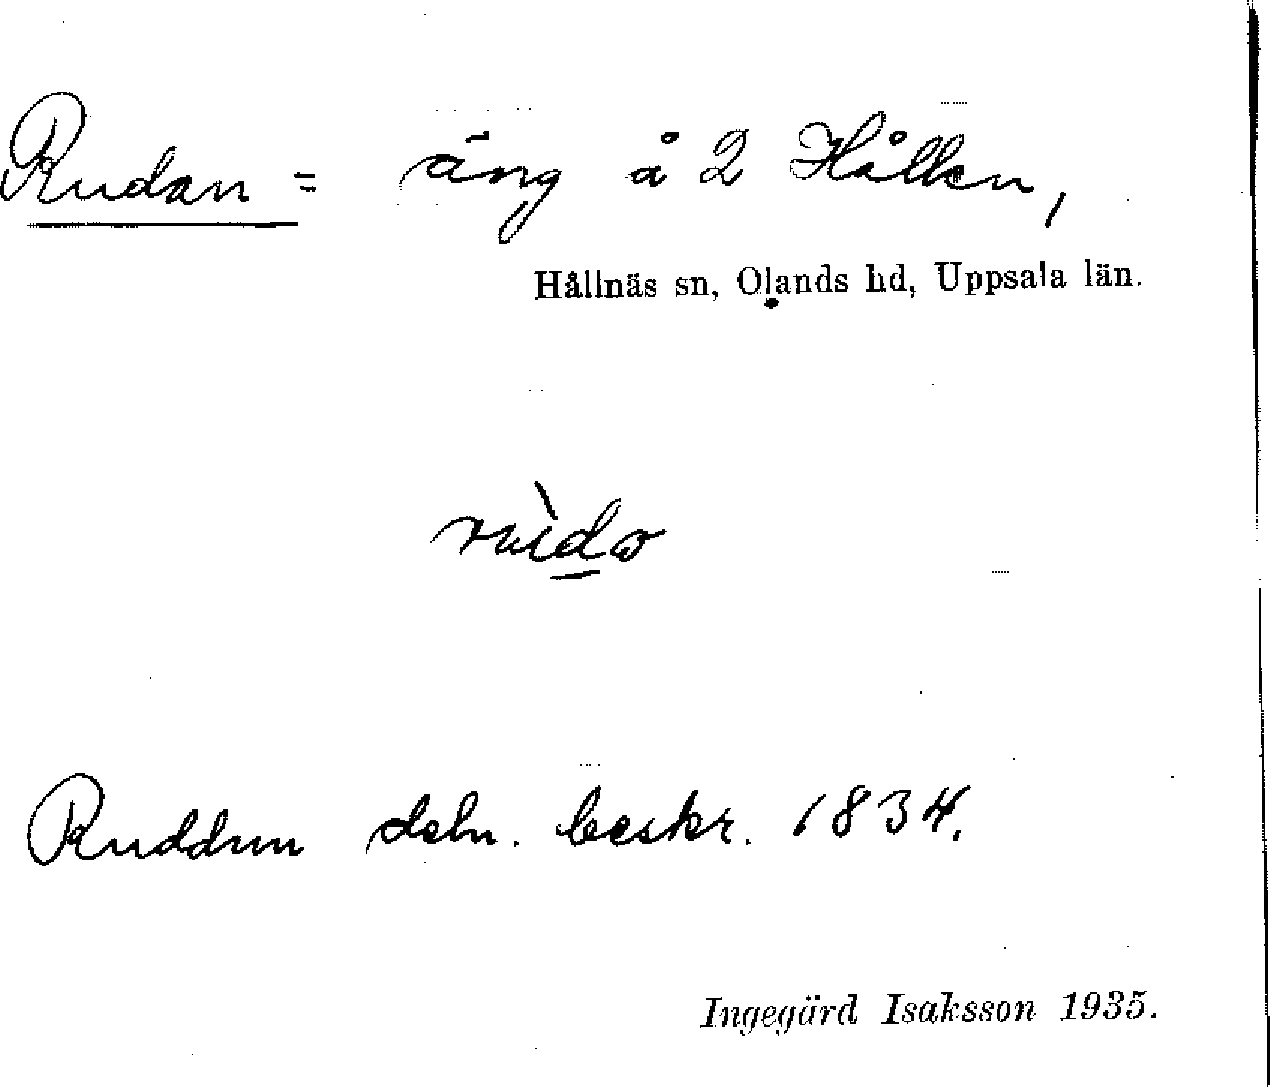 Rudan = äng å 2 Hållen,
Hållnäs sn, Olands hd, Uppsala län.
Ruddun deln. beskr. 1834.
Ingegärd Isaksson 1935.